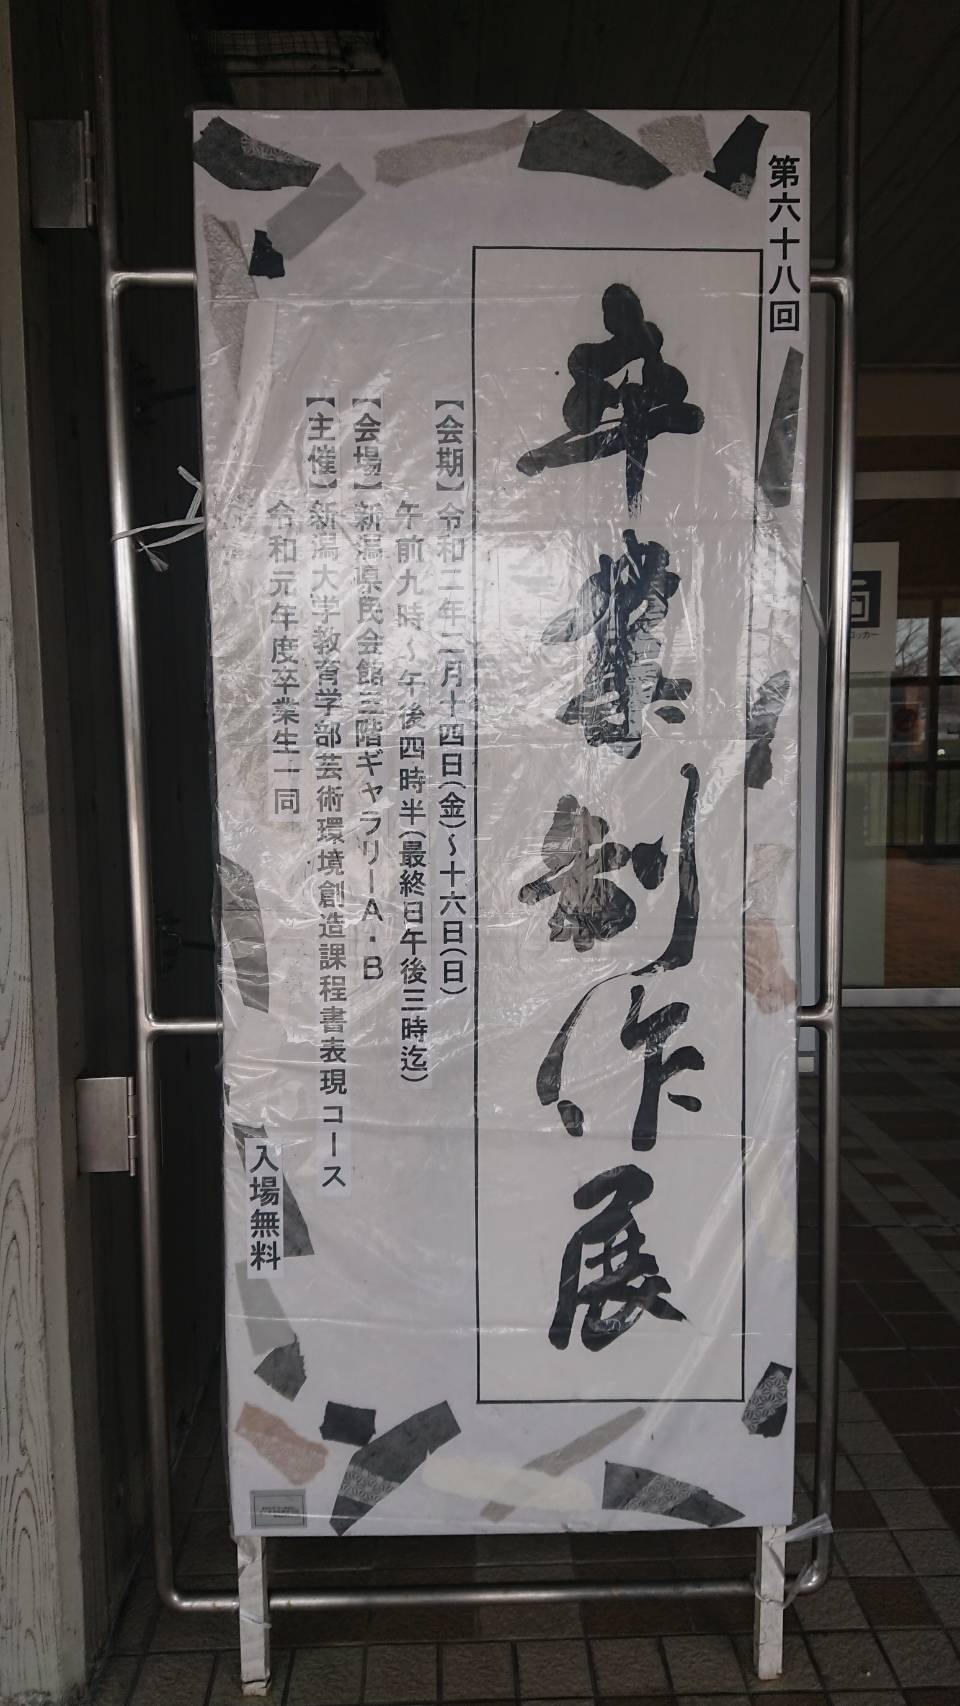 第六十八回
卒業制作展
【会期】令和二年二月十四日(金)〜十六日(日)
午前九時〜午後四時半(最終日午後三時迄)
【会場】新潟県民会館三階ギャラリーA・B
【主催】新潟大学教育学部芸術環境創造課程書表現コース
令和元年度卒業生一同
入場無料